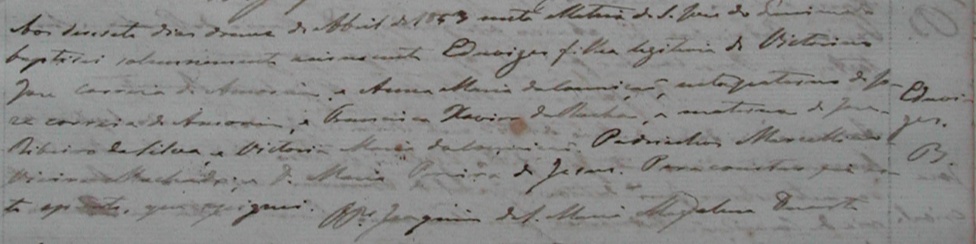 Aos desesete dias do mes de Abril de 1853 nesta Matris de S. Jose do
baptisei solemnemente innocente Eduviges filha legitima de Victorino
Jose Correia de Amorim, e Anna Maria da Conceição, neta paterna de Jo-
ze Correia de Amorim, e Francisca Xavier da Rocha, e materna de Jose
Ribeiro da Silva, e Victoria Maria da Conceição. Padrinhos Marcellino
Vieira Machado, e D. Maria Pereira de Jesus. Para constar fiz es-
te que assignei. Joaquim de S. Maria Magdalena Duarte
Eduvi-
ges.
B.